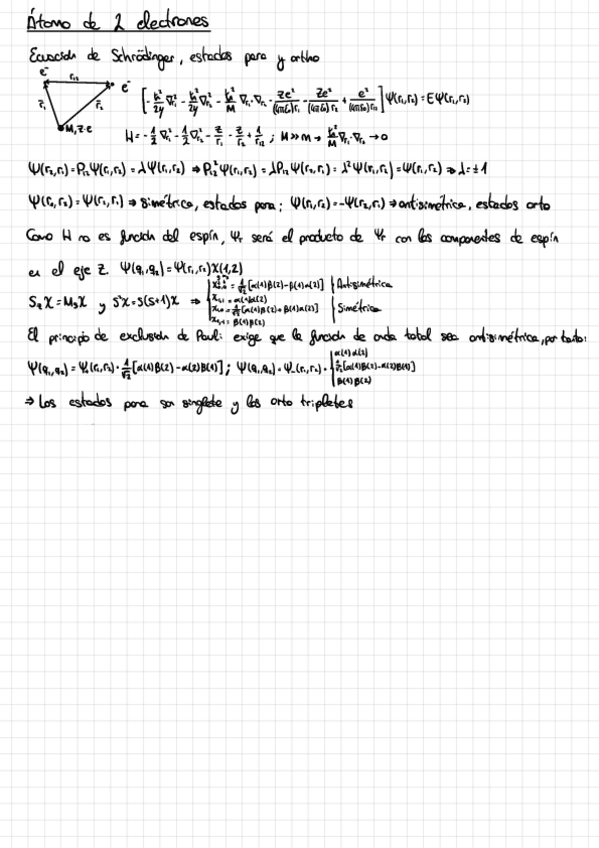 Átomo de 2 electrones
Ecuación de Schrödinger, estados para y orto
e⁻ r₁₂ e⁻
r̄₁ r̄₂
M, Z·e
[-ħ²/2μ ∇²r₁ - ħ²/2μ ∇²r₂ - ħ²/M ∇r₁·∇r₂ - Ze²/(4πε₀)r₁ - Ze²/(4πε₀)r₂ + e²/(4πε₀)r₁₂] Ψ(r₁,r₂) = EΨ(r₁,r₂)
H = -1/2 ∇²r₁ - 1/2 ∇²r₂ - Z/r₁ - Z/r₂ + 1/r₁₂ ; M>>m → ħ²/M ∇r₁·∇r₂ → 0
Ψ(r₂,r₁) = P₁₂Ψ(r₁,r₂) = λΨ(r₁,r₂) ⇒ P₁₂²Ψ(r₁,r₂) = λP₁₂Ψ(r₁,r₂) = λ²Ψ(r₁,r₂) = Ψ(r₁,r₂) ⇒ λ = ±1
Ψ(r₁,r₂) = Ψ(r₂,r₁) ⇒ simétrica, estados para; Ψ(r₁,r₂) = -Ψ(r₂,r₁) ⇒ antisimétrica, estados orto
Como H no es función del espín, Ψ_T será el producto de Ψ_r con las componentes de espín
en el eje Z. Ψ(q₁,q₂) = Ψ(r₁,r₂)χ(1,2)
S_zχ = M_sχ y S²χ = S(S+1)χ ⇒
χ₀,₀ = 1/√2 [α(1)β(2) - β(1)α(2)] Antisimétrica
χ₁,₁ = α(1)α(2)
χ₁,₀ = 1/√2 [α(1)β(2) + β(1)α(2)] Simétrica
χ₁,₋₁ = β(1)β(2)
El principio de exclusión de Pauli exige que la función de onda total sea antisimétrica, por tanto:
Ψ(q₁,q₂) = Ψ₊(r₁,r₂) · 1/√2 [α(1)β(2) - α(2)β(1)] ; Ψ(q₁,q₂) = Ψ₋(r₁,r₂) ·
α(1)α(2)
1/√2 [α(1)β(2) - α(2)β(1)]
β(1)β(2)
⇒ Los estados para son singlete y los orto tripletes